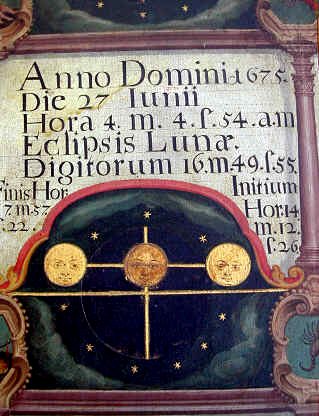 Anno Domini 1675.
Die 27 Iunii
Hora 4. m. 4. ſ. 54. a.m
Eclipsis Lunæ.
Digitorum 16. m. 49. ſ. 55.
Finis Hor.
7. m. 57.
ſ. 22.
Initium
Hor. 14
m. 12.
ſ. 26.